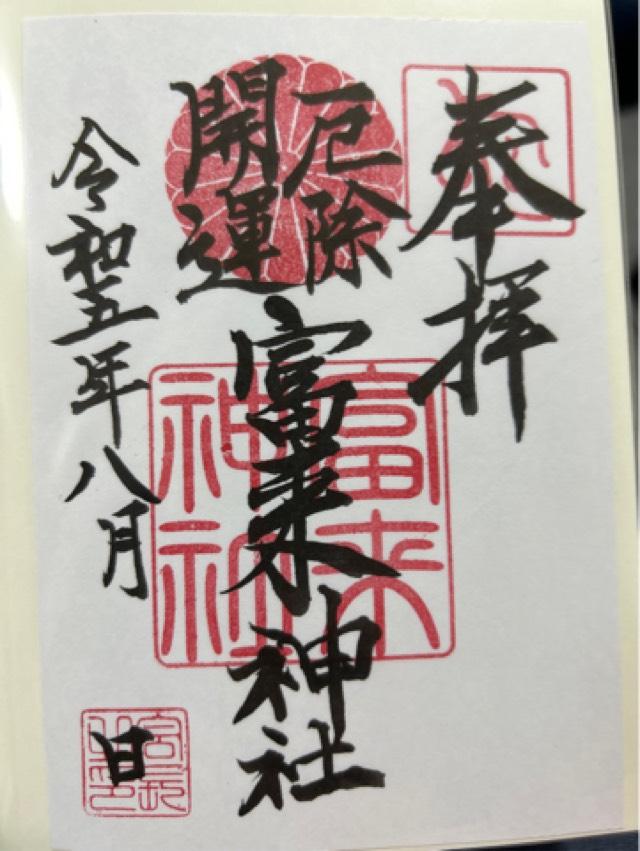 奉拝
厄除
開運
富来神社
令和五年八月
日
富来
神社